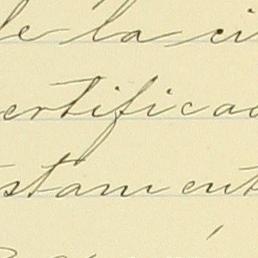 de la ci
ertificad
stament